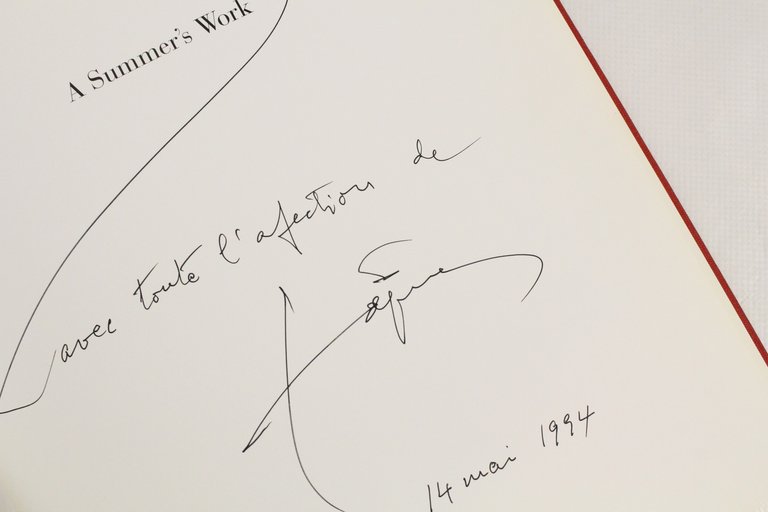 A Summer's Work
avec toute l'afection de
14 mai 1994